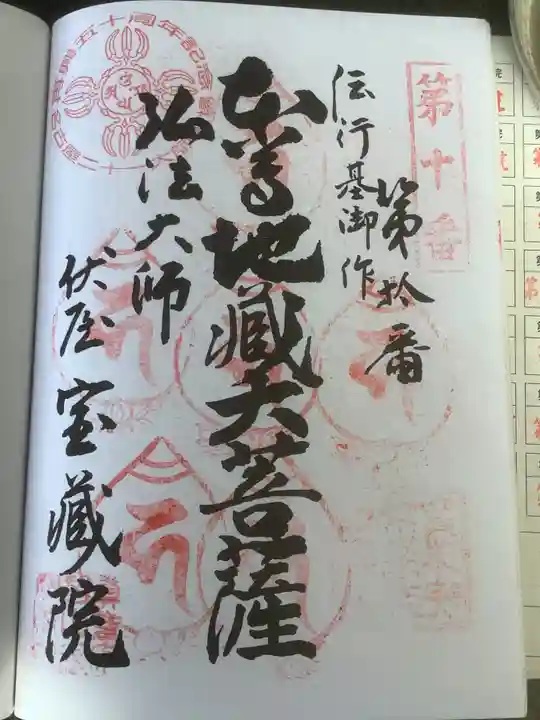 第十番
第拾番
伝行基御作
本尊地蔵大菩薩
弘法大師
伏屋
宝蔵院
五十周年記念